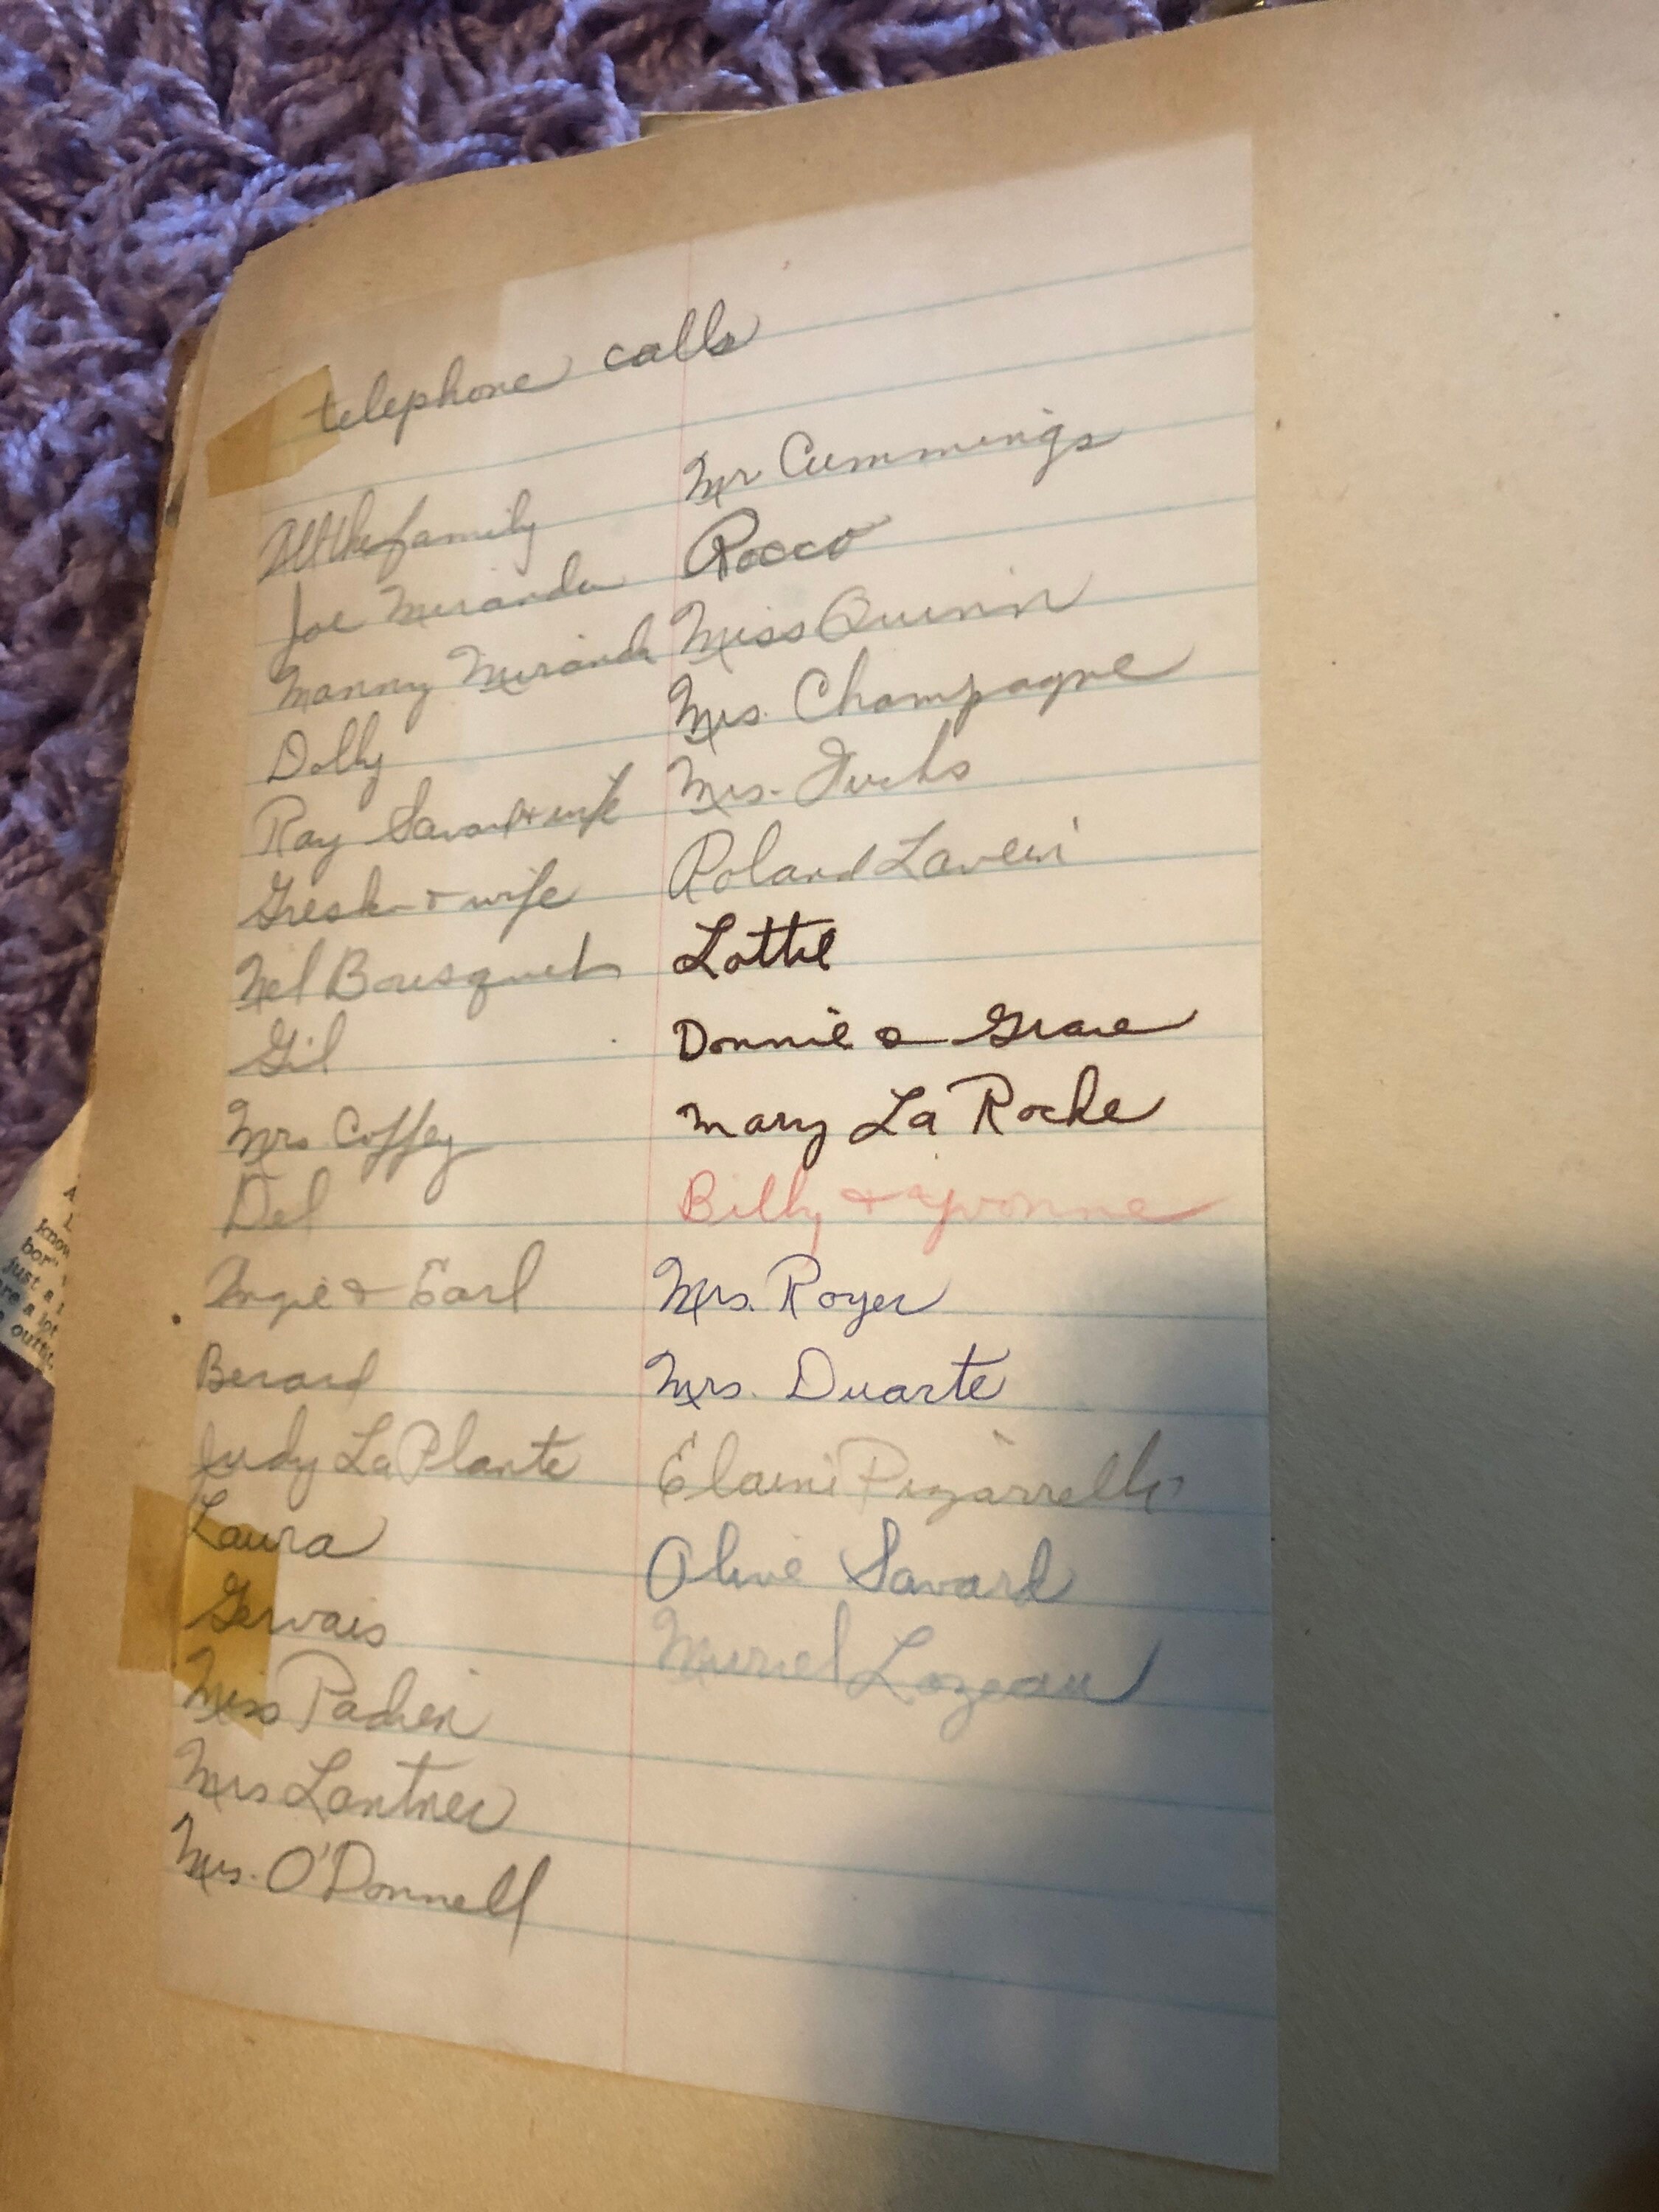 telephone calls
All the family
Joe Miranda
Manny Miranda
Dolly
Ray Savard + wife
& wife
Nel Bousquet
Gil
Mrs Coffey
Del
Angie & Earl
Berard
Judy La Plante
Laura
Gervais
Miss
Mrs Lantner
Mrs. O'Donnell
Mr Cummings
Rocco
Miss Quinn
Mrs. Champagne
Mrs. Fuchs
Roland
Lottie
Donnie & Grace
Mary La Roche
Billy & Yvonne
Mrs. Royer
Mrs. Duarte
Elaine
Olive Savard
Muriel Lozeau
know
bor"
just a
are a lot